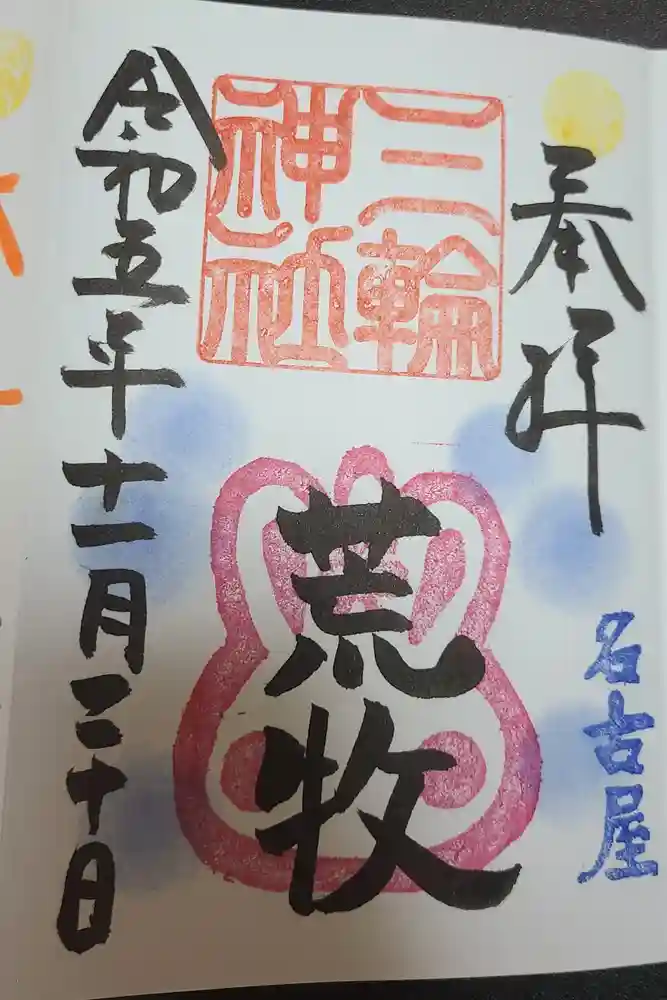 奉拝
名古屋
三輪
神社
荒牧
令和五年十一月二十日